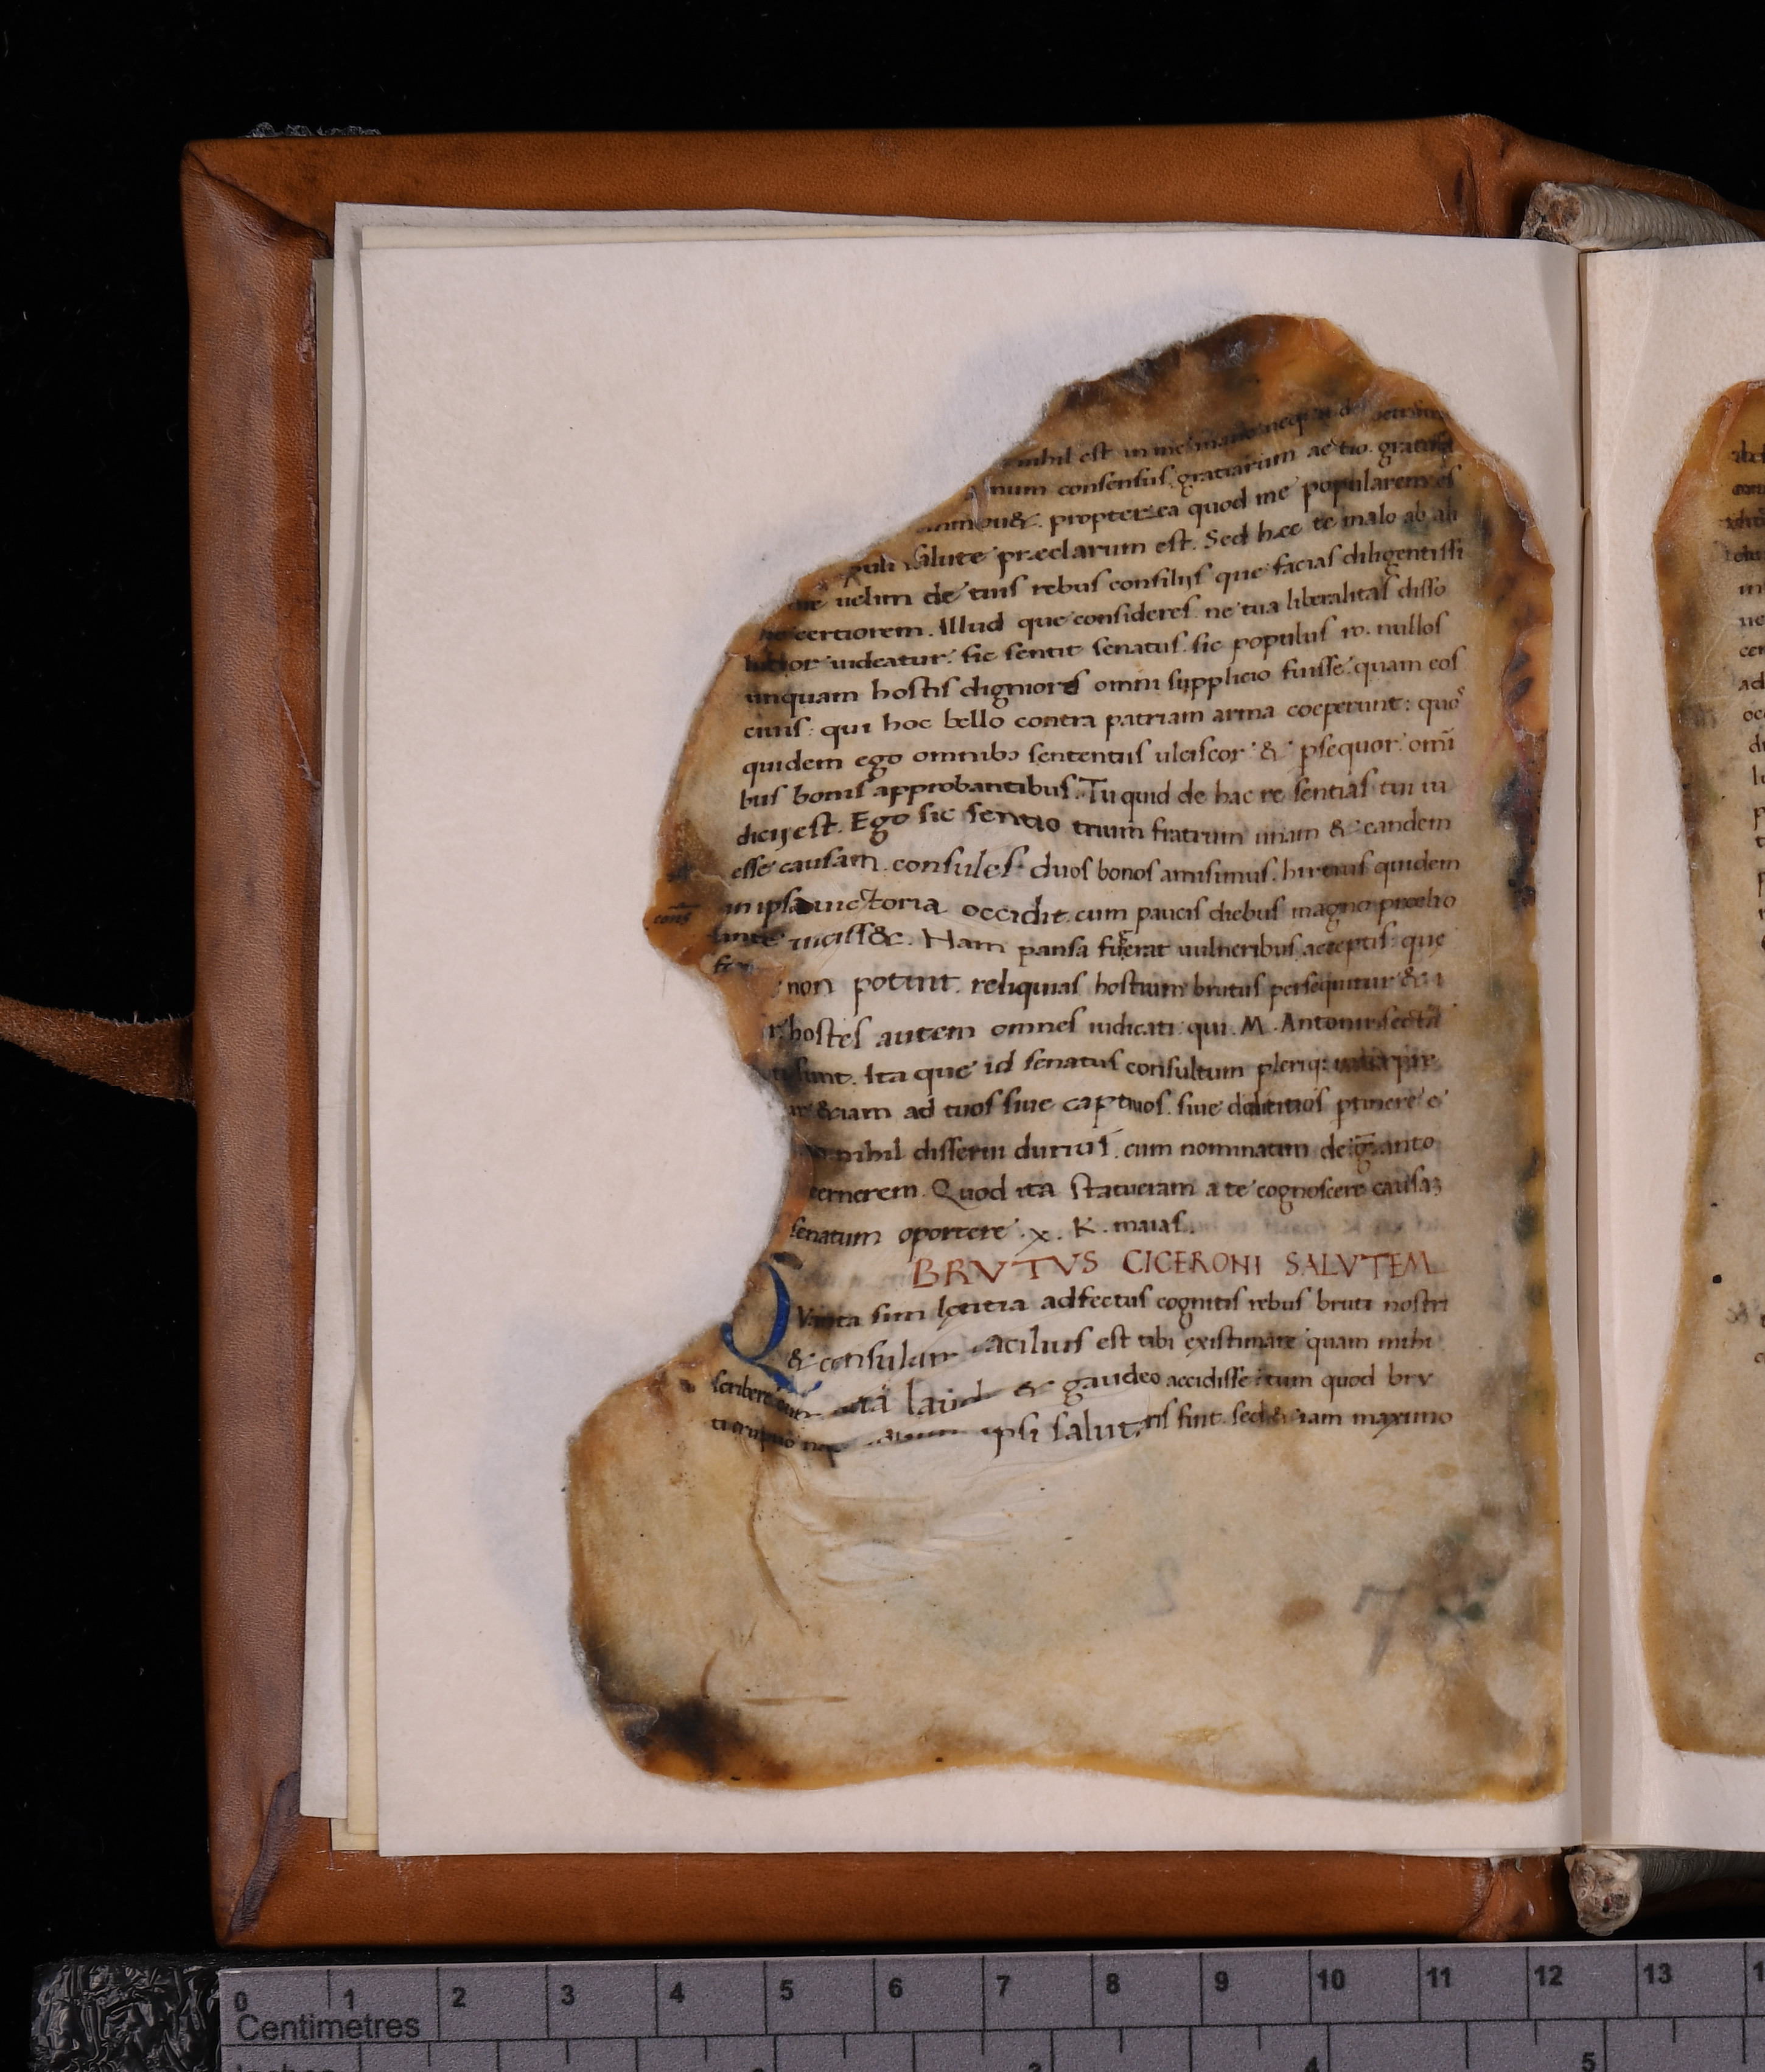 nihil est in me inane neque de
num consensus. gratiarum ac tio. gratula
mou&. propterea quod me popularem es
salute præclarum est. Sed hæc te malo ab ali
uelim de tuis rebus consilijs que facias diligentissi
certiorem. Illud que consideres. ne tua liberalitas disso
lutior uideatur. sic sentit senatus. sic populus .ro. nullos
unquam hostis digniores omni supplicio fuisse. quam eos
ciuis: qui hoc bello contra patriam arma coeperunt: quos
quidem ego omnibꝯ sententiis ulciscor & psequor omi
bus bonis approbantibus. Tu quid de hac re sentias tui iu
dicij est. Ego sic sentio trium fratrum unam & eandem
esse causam. consules duos bonos amisimus. hircius quidem
in ipsa uictoria occidit. cum paucis diebus magno proelio
cons
uiciss&. Nam pansa fugerat uulneribus acceptis: que
non potuit. reliquias hostium brutus persequitur &
hostes autem omnes iudicati qui. M. Antonii secta
sunt. Ita que id senatus consultum pleriq:
&iam ad tuos siue captiuos. siue dediticios ptinere
nihil disserui durius. cum nominatim de .G. anto
cernerem. Quod ita statueram a te cognoscere causaʒ
senatum oportere .x. K. maias.
BRVTVS CICERONI SALVTEM
QVanta sim lętitia adfectus cognitis rebus bruti nostri
& consulum facilius est tibi existimare quam mihi
scribere & gaudeo accidisse tum quod brv
ipsi salutaris fuit. sed &iam maximo
7